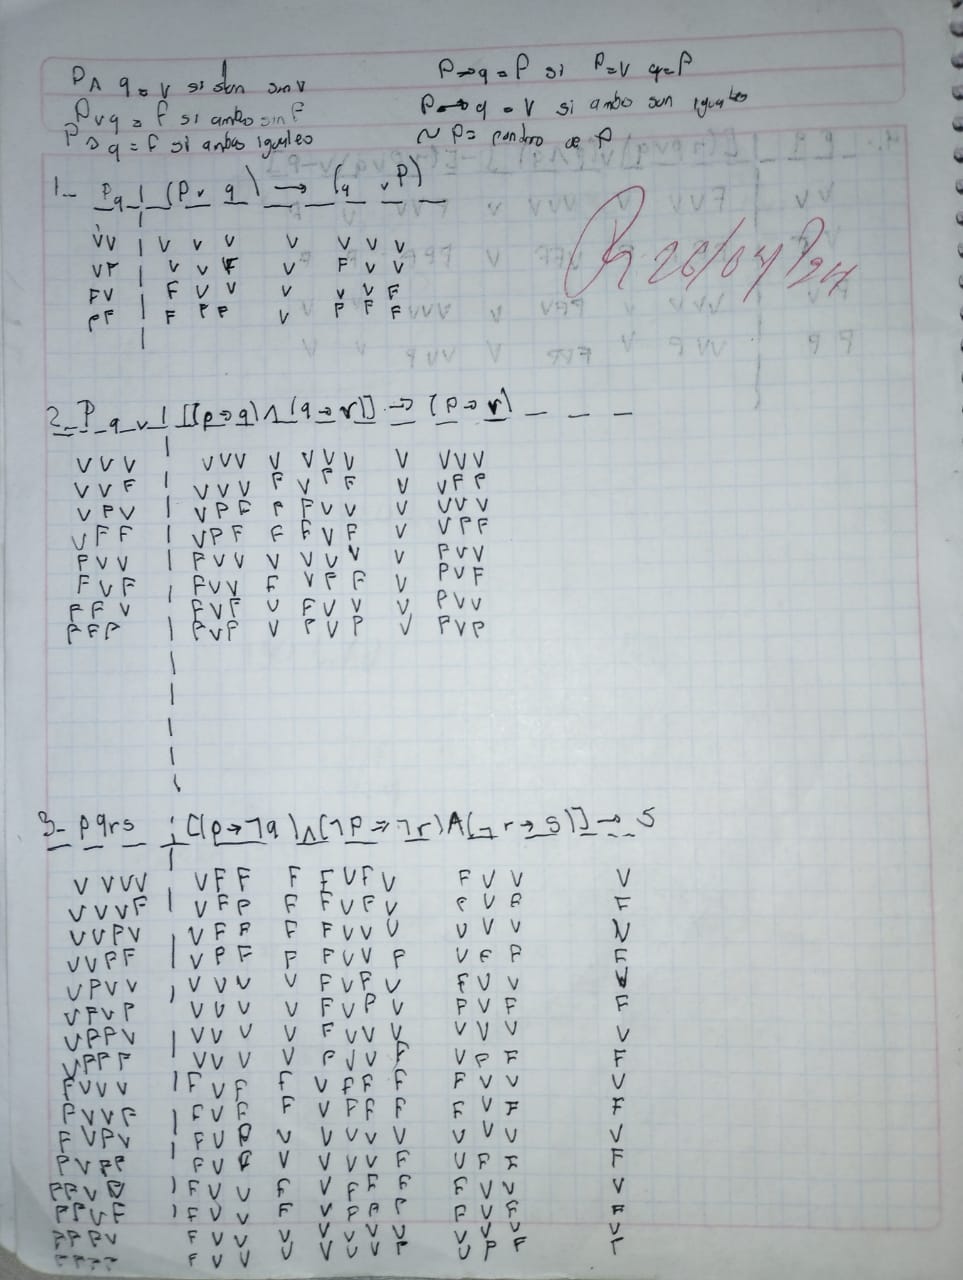 P ∧ q = V si son son V
P ∨ q = F si ambo sin F
P → q = F si ambos iguales
P → q = P si P = V q = P
P ↔ q = V si ambo son iguales
~ P = de P
1- P q | (P v q) → (q v P)
V V | V V V V V V V
V F | V V F V F V V
F V | F V V V V V F
P F | F P P V P F F
R 26/04/24
2- P q r | [(p → q) ∧ (q → r)] → (p → r)
V V V | V V V V V V V V V V V
V V F | V V V F V P F V V F P
V P V | V P F P F V V V V V V
V F F | V P F F F V F V V P F
P V V | P V V V V V V V P V V
F V F | F V V F V P F V P V F
F F V | F V F V F V V V P V V
P F P | P V P V P V P V P V P
3- p q r s | [(p → ¬q) ∧ (¬P → ¬r) ∧ (¬r → s)] → S
V V V V | V F F F F V F V F V V V
V V V F | V F P F F V F V P V F F
V V P V | V F F F F V V V V V V N
V V P F | V P F P F V V P V F P F
V P V V | V V V V F V F V F V V V
V F V P | V V V V F V P V P V F F
V P P V | V V V V F V V V V V V V
V P P P | V V V V P V V F V P F F
F V V V | F V F F V F F F F V V V
P V V P | F V F F V F F F F V F F
F V P V | F V P V V V V V V V V V
P V P P | F V F V V V V F V F F F
P P V V | F V V F V F F F F V V V
P P V F | F V V F V P P P P V F F
P P P V | F V V V V V V V V V V V
P P P P | F V V V V V V P V P F F